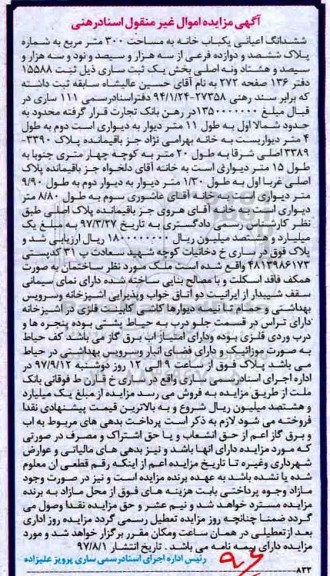 آگهی مزایده اموال غیر منقول اسناد رهنی
ششدانگ اعیانی یکباب خانه به مساحت ۳۰۰ متر مربع به شماره
پلاک ششصد و دوازده فرعی از سه هزار و سیصد و نود و سه هزار و
سیصد و هشتاد و نه اصلی بخش یک ثبت ساری ذیل ثبت ۱۵۵۸۸
دفتر ۱۳۶ صفحه ۲۷۲ به نام آقای حسین عالیشاه سابقه ثبت داشته
که برابر سند رهنی ۲۷۳۵۸-۹۴/۱/۲۴ دفتر اسناد رسمی ۱۱۱ ساری در
قبال مبلغ ۱۳۵۰۰۰۰۰۰۰ در رهن بانک تجارت قرار گرفته محدود به
حدود شمالا اول به طول ۱۱ متر دیوار به دیواری است دوم به طول
۴ متر دیواریست به خانه بهرامی نژاد جز باقیمانده پلاک ۳۳۹۰-
۳۳۸۹ اصلی شرقا به طول ۲۰ متر به کوچه چهار متری جنوبا به
طول ۱۵ متر دیواری است به خانه آقای دلخواه جز باقیمانده پلاک
اصلی غربا اول به طول ۱/۳۰ متر دیوار به دیوار دوم به طول ۹/۹۰
متر دیواری است به خانه آقای عاشوری سوم به طول ۸/۸۰ متر
دیواری است به خانه آقای هروی جز باقیمانده پلاک اصلی طبق
نظر کارشناس رسمی دادگستری به تاریخ ۹۷/۳/۲۷ به مبلغ یک
میلیارد و هشتصد میلیون ریال ۱۸۰۰۰۰۰۰۰۰ ریال ارزیابی شد و
پلاک فوق در ساری خ دخانیات کوچه شهید سعادت پ ۳۱ کدپستی
۴۸۱۳۹۸۶۱۷۳ واقع شده است ملک مورد نظر ساختمان به صورت
همکف فاقد اسکلت و با مصالح بنایی ساخته شده دارای نمای سیمانی
سقف شیبدار از ایرانیت دو اتاق خواب و پذیرایی آشپزخانه و سرویس
بهداشتی و حمام با نیمه دیوارها کاشی کابینت فلزی در آشپزخانه
دارای تراس در قسمت جلو درب به حیاط پشتی بوده پنجره ها و
درب وردی فلزی بوده و دارای امتیاز آب برق گاز می باشد کف حیاط
به صورت موزائیک و دارای فضای انبار و سرویس بهداشتی در حیاط
می باشد پلاک فوق از ساعت ۹ الی ۱۲ روز دوشنبه ۹۷/۹/۱۲ در
اداره اجرای اسناد رسمی ساری واقع در ساری خ قارن ط فوقانی بانک
ملت از طریق مزایده به فروش می رسد مزایده از مبلغ یک میلیارد
و هشتصد میلیون ریال شروع و به بالاترین قیمت پیشنهادی نقدا
فروخته می شود لازم به ذکر است پرداخت بدهی های مربوط به آب
و برق گاز اعم از حق انشعاب و یا حق اشتراک و مصرف در صورتی
که مورد مزایده دارای آنها باشد و نیز بدهی های مالیاتی و عوارض
شهرداری و غیره تا تاریخ مزایده اعم از اینکه رقم قطعی آن معلوم
شده یا نشده باشد به عهده برنده مزایده است و نیز در صورت وجود
مازاد وجوه پرداختی بابت هزینه های فوق از محل مازاد به برنده
مزایده مسترد خواهد شد و نیم عشر و حق مزایده نقدا وصول می
گردد ضمنا چنانچه روز مزایده تعطیل رسمی گردد مزایده روز اداری
بعد از تعطیلی در همان ساعت و مکان مقرر برگزار خواهد شد و مورد
مزایده دارای بیمه نامه می باشد . تاریخ انتشار ۹۷/۸/۱
رئیس اداره اجرای اسناد رسمی ساری پرویز علیزاده
۸۳۲